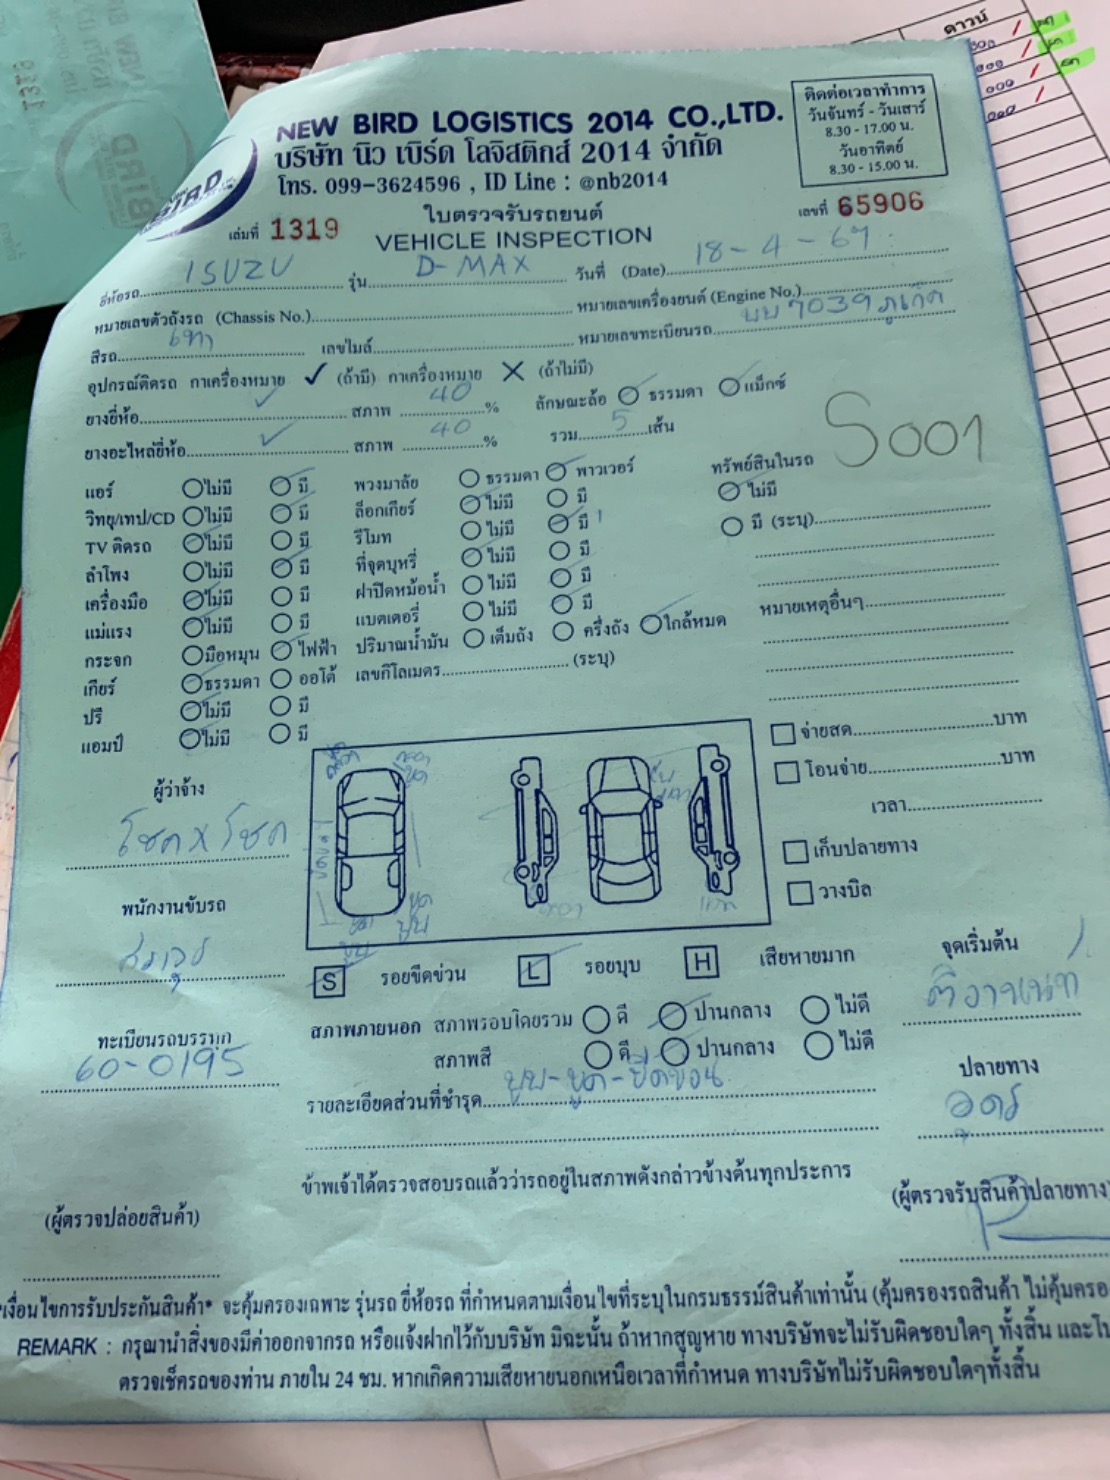 NEW BIRD LOGISTICS 2014 CO.,LTD.
บริษัท นิว เบิร์ด โลจิสติกส์ 2014 จำกัด
โทร. 099-3624596 , ID Line : @nb2014
ติดต่อเวลาทำการ
วันจันทร์ - วันเสาร์
8.30 - 17.00 น.
วันอาทิตย์
8.30 - 15.00 น.
ดาวน์
เล่มที่ 1319
ใบตรวจรับรถยนต์
VEHICLE INSPECTION
เลขที่ 65906
ยี่ห้อรถ ISUZU รุ่น D-MAX วันที่ (Date) 18-4-67
หมายเลขตัวถังรถ (Chassis No.) หมายเลขเครื่องยนต์ (Engine No.)
สีรถ เทา เลขไมล์ หมายเลขทะเบียนรถ บบ 7039 ภูเก็ต
อุปกรณ์ติดรถ กาเครื่องหมาย ✓ (ถ้ามี) กาเครื่องหมาย X (ถ้าไม่มี)
ยางยี่ห้อ ✓ สภาพ 40 % ลักษณะล้อ ธรรมดา แม็กซ์
ยางอะไหล่ยี่ห้อ ✓ สภาพ 40 % รวม 5 เส้น
S001
แอร์ ไม่มี มี พวงมาลัย ธรรมดา พาวเวอร์ ทรัพย์สินในรถ
วิทยุ/เทป/CD ไม่มี มี ล็อกเกียร์ ไม่มี มี ไม่มี
TV ติดรถ ไม่มี มี รีโมท ไม่มี มี 1 มี (ระบุ)
ลำโพง ไม่มี มี ที่จุดบุหรี่ ไม่มี มี
เครื่องมือ ไม่มี มี ฝาปิดหม้อน้ำ ไม่มี มี
แม่แรง ไม่มี มี แบตเตอรี่ ไม่มี มี หมายเหตุอื่นๆ
กระจก มือหมุน ไฟฟ้า ปริมาณน้ำมัน เต็มถัง ครึ่งถัง ใกล้หมด
เกียร์ ธรรมดา ออโต้ เลขกิโลเมตร (ระบุ)
ปรี ไม่มี มี
แอมป์ ไม่มี มี
จ่ายสด บาท
โอนจ่าย บาท
เวลา
เก็บปลายทาง
วางบิล
ผู้ว่าจ้าง
โชค x โชค
พนักงานขับรถ
ทะเบียนรถบรรทุก
60-0195
S รอยขีดข่วน L รอยบุบ H เสียหายมาก
จุดเริ่มต้น
สภาพภายนอก สภาพรอบโดยรวม ดี ปานกลาง ไม่ดี
สภาพสี ดี ปานกลาง ไม่ดี
รายละเอียดส่วนที่ชำรุด บุบ-ขูด-ขีดข่วน
ปลายทาง
อุดร
ข้าพเจ้าได้ตรวจสอบรถแล้วว่ารถอยู่ในสภาพดังกล่าวข้างต้นทุกประการ
(ผู้ตรวจปล่อยสินค้า)
(ผู้ตรวจรับสินค้าปลายทาง)
เงื่อนไขการรับประกันสินค้า* จะคุ้มครองเฉพาะ รุ่นรถ ยี่ห้อรถ ที่กำหนดตามเงื่อนไขที่ระบุในกรมธรรม์สินค้าเท่านั้น (คุ้มครองรถสินค้า ไม่คุ้มครอ
REMARK : กรุณานำสิ่งของมีค่าออกจากรถ หรือแจ้งฝากไว้กับบริษัท มิฉะนั้น ถ้าหากสูญหาย ทางบริษัทจะไม่รับผิดชอบใดๆ ทั้งสิ้น และโป
ตรวจเช็ครถของท่าน ภายใน 24 ชม. หากเกิดความเสียหายนอกเหนือเวลาที่กำหนด ทางบริษัทไม่รับผิดชอบใดๆทั้งสิ้น